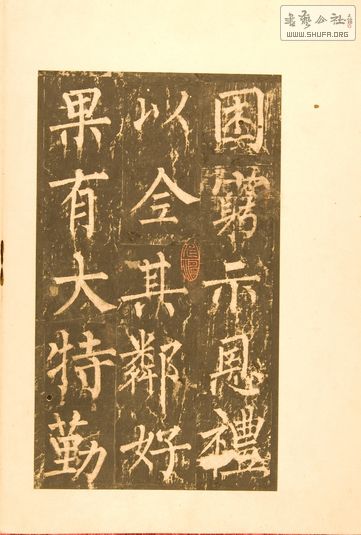 困窮示恩禮
以全其鄰好
果有大特勤
書藝公社
WWW.SHUFA.ORG